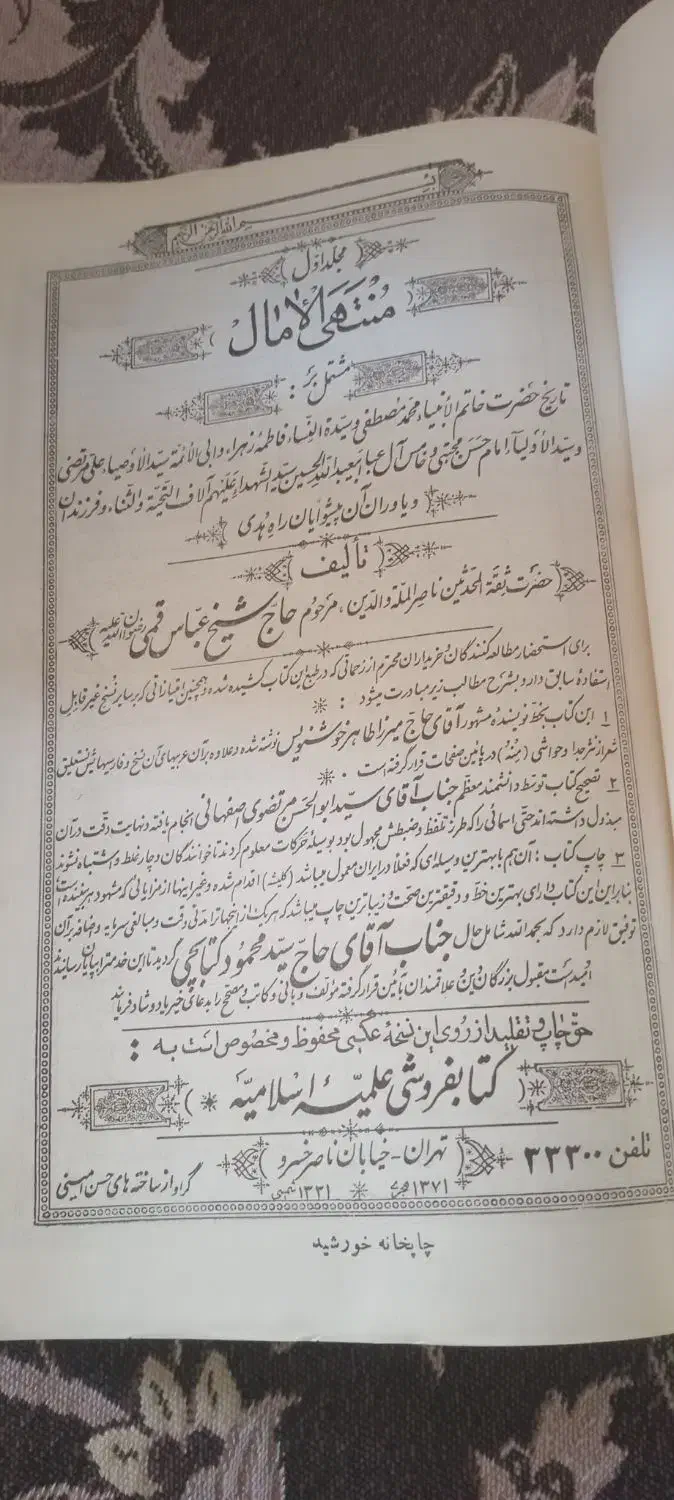 بسم الله الرحمن الرحیم
مجلد اول
مُنْتَهَی الْآمٰالْ
مشتمل بر :
تاریخ حضرت خاتم الأنبیاء محمد مصطفی و سیدة النساء فاطمه زهراء و ابی الائمة سید الأوصیاء علی مرتضی
و سید الأولیاء امام حسن مجتبی و خامس آل عبا ابیعبدالله الحسین سید الشهداء علیهم آلاف التحیة والثناء و فرزندان
و یاوران آن پیشوایان راه هُدی
تألیف
حضرت ثقة المحدثین ناصر الملة والدین ، مرحوم حاج شیخ عباس قمی رضوان الله علیه
برای استحضار مطالعه کنندگان و خریداران محترم از زحماتی که در طبع این کتاب کشیده شده و همچنین امتیازاتی که بر سایر نسخ غیر قابل
استفادهٔ سابق دارد بشرح مطالب زیر مبادرت میشود :
۱ این کتاب بخط نویسندهٔ مشهور آقای حاج میرزا طاهر خوشنویس نوشته شده و علاوه بر آن عربیهای آن نسخ و فارسیهایش نستعلیق
شعر از نثر جدا و حواشی (منه) در پائین صفحات قرار گرفته است .
۲ تصحیح کتاب توسط دانشمند معظم جناب آقای سید ابوالحسن مرتضوی اصفهانی انجام یافته و نهایت دقت در آن
مبذول داشته اند حتی اسمائی را که طرز تلفظ و ضبطش مجهول بود بوسیلهٔ حرکات معلوم کردند تا خوانندگان دچار غلط و اشتباه نشوند
۳ چاپ کتاب : آن هم با بهترین وسیله ای که فعلا در ایران معمول میباشد (کلیشه) اقدام شده و غیر اینها از مزایائی که مشهود هر بیننده است
بنابراین این کتاب دارای بهترین خط و دقیقترین صحت و زیباترین چاپ میباشد که هر یک از اینجهات زمانی دقت و مبالغی سرمایه و اضافه بر آن
توفیق لازم دارد که بحمدالله شامل حال جناب آقای حاج سید محمود کتابچی گردید تا این خدمت را بپایان رسانیدند
امید است مقبول بزرگان دین و علاقمندان بآئین قرار گرفته مؤلف و بانی و کاتب و مصحح را بدعای خیر یاد و شاد فرمایند
حق چاپ و تقلید از روی این نسخهٔ عکسی محفوظ و مخصوص است به :
کتابفروشی علمیهٔ اسلامیه
تلفن ۲۳۳۰۰ تهران - خیابان ناصر خسرو
۱۳۷۱ هجری ۱۳۳۱ شمسی گراور از ساخته های حسن امینی
چاپخانه خورشید